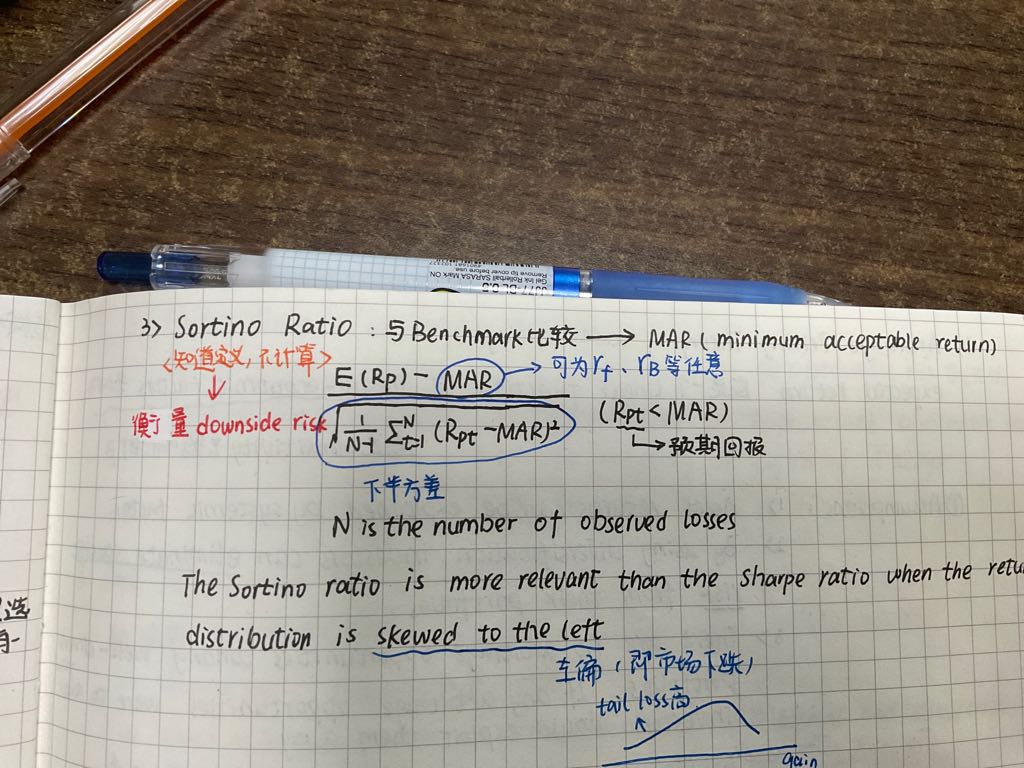 3> Sortino Ratio : 与Benchmark比较 → MAR ( minimum acceptable return)
<知道定义,不计算>
E (Rp) - MAR → 可为rf、rB等任意
衡量 downside risk
√ 1/N-1 Σ_{t=1}^{N} (Rpt - MAR)² (Rpt < MAR)
→ 预期回报
下半方差
N is the number of observed losses
The Sortino ratio is more relevant than the sharpe ratio when the retu
distribution is skewed to the left
左偏(即市场下跌)
tail loss高
gain
选
Gel Ink Rollerball SARASA Mark ON
Remove tip cover before use.